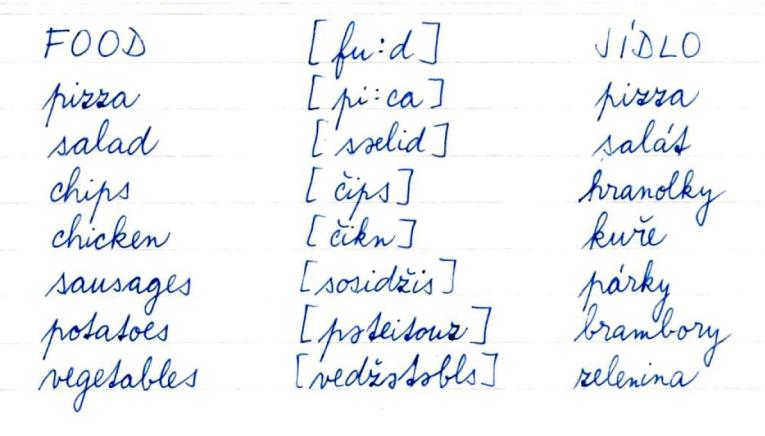 FOOD [fu:d] JÍDLO
pizza [pi:ca] pizza
salad [sælid] salát
chips [čips] hranolky
chicken [čikn] kuře
sausages [sosidžis] párky
potatoes [pəteitouz] brambory
vegetables [vedžətəbls] zelenina